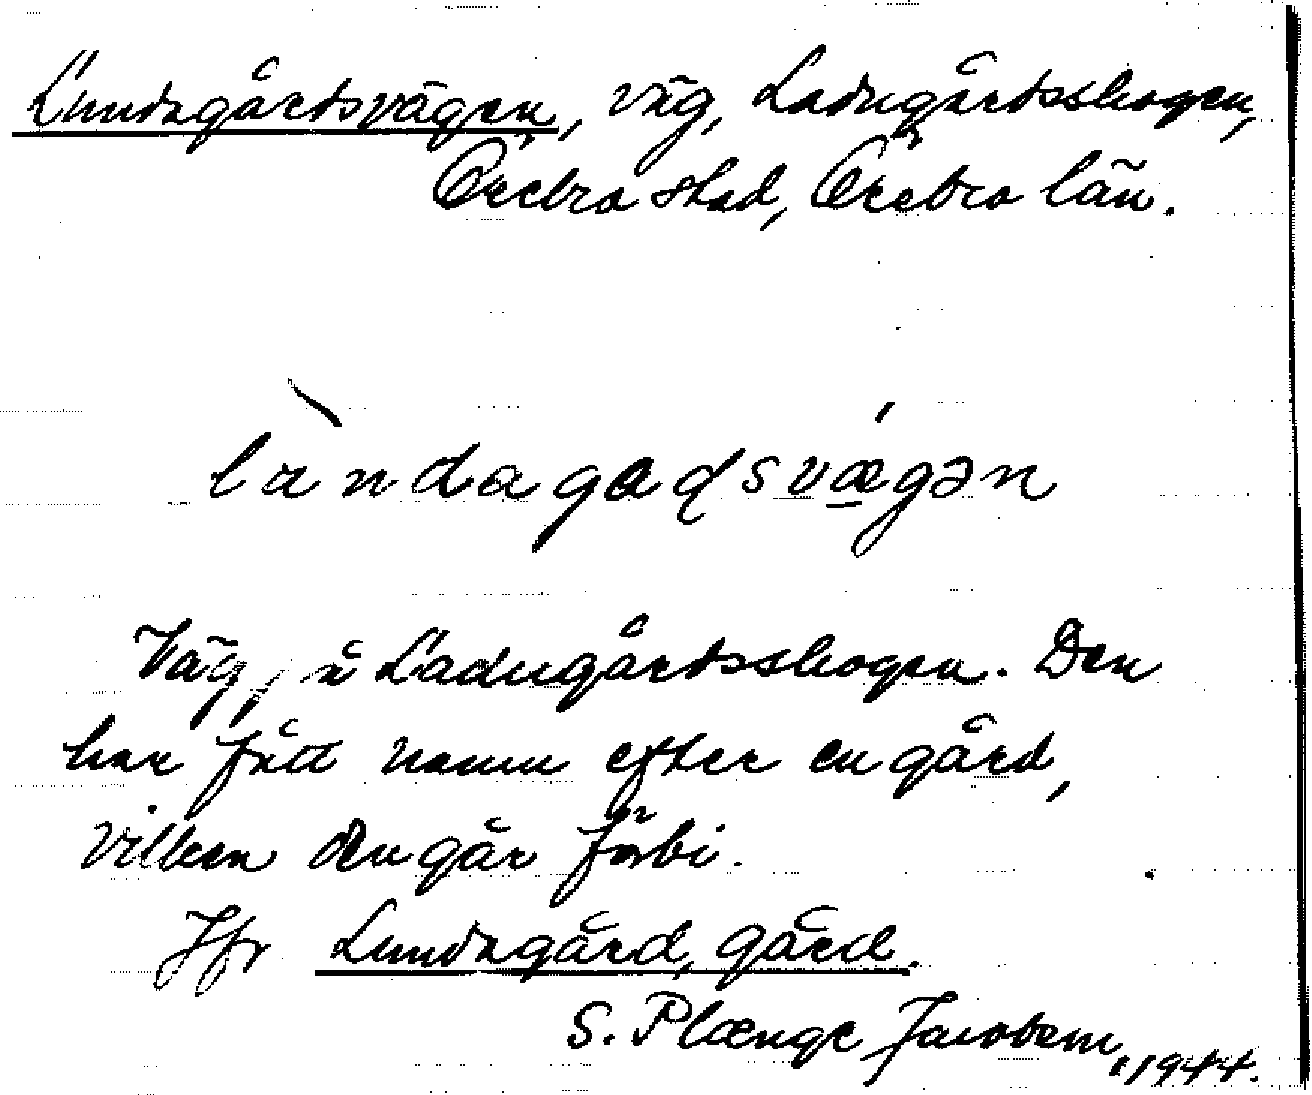 Lundagårdsvägen, väg, Ladugårdsskogen,
Örebro stad, Örebro län.
làndagaɖsvǽgən
Väg, å Ladugårdsskogen. Den
har fått namn efter en gård,
vilken den går förbi.
Jfr Lundagård, gård.
S. Plænge Jacobson, 1944.